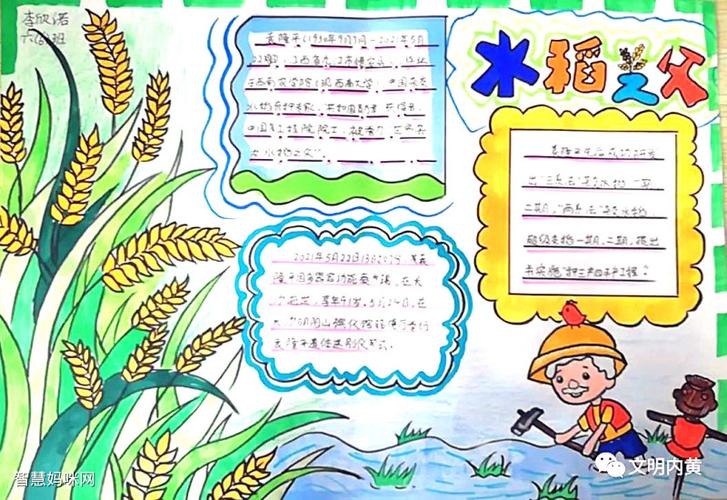 李欣诺
六(8)班
水稻之父
袁隆平(1930年9月7月-2021年5月
22日),江西省九江市德安县人,毕业
于西南农学院(现西南大学),中国杂交
水稻育种专家,共和国勋章获得者,
中国工程院院士,被誉为"世界杂
交水稻之父"。
袁隆平先后成功研发
出"三系法"杂交水稻一期
二期,"两系法"杂交水稻
超级杂稻一期,二期,提出
并实施"种三产四丰产工程"。
2021年5月22日13时07分,袁
隆平因多器官功能衰竭,在长
沙逝世,享年91岁。5月24日,在
明阳山殡仪馆
袁隆平遗体送别仪式。
智慧妈咪网
文明内黄